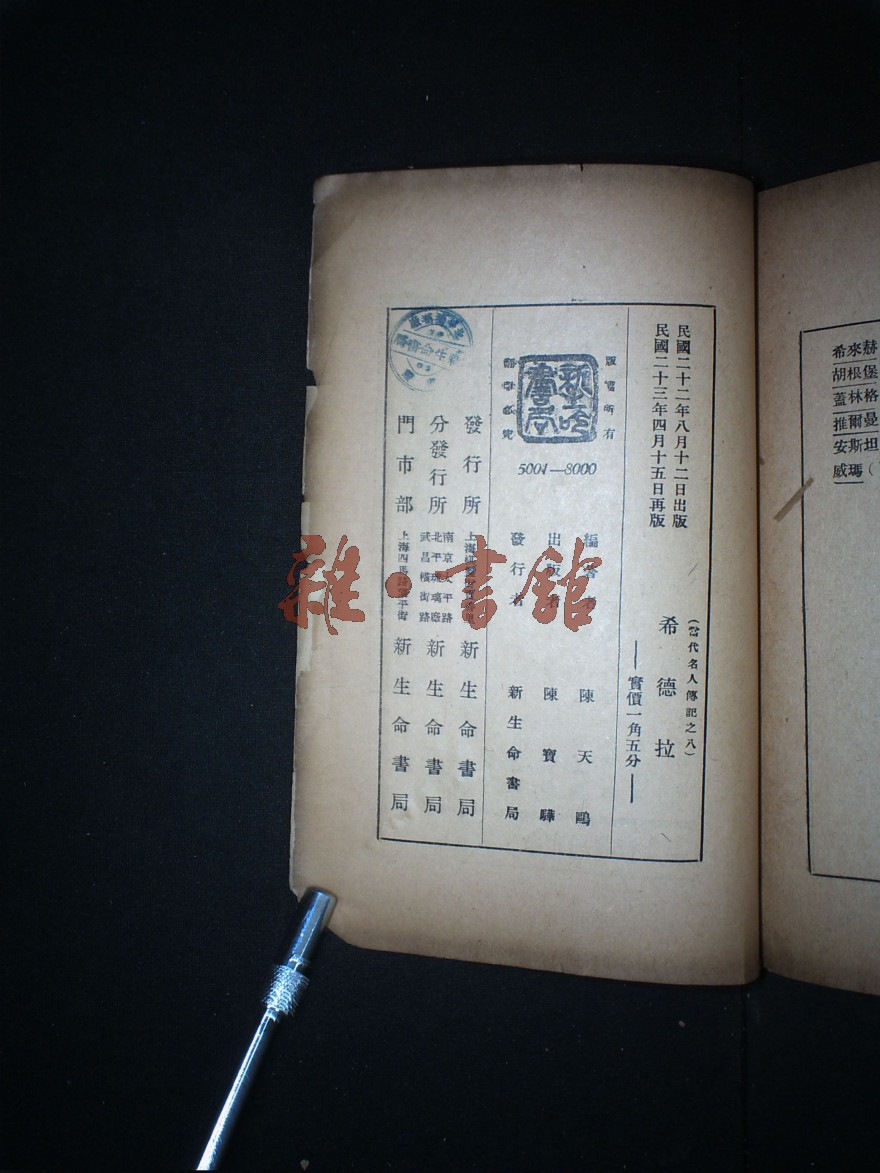 民國二十二年八月十二日出版
民國二十三年四月十五日再版
(當代名人傳記之八)
希德拉
實價一角五分
版權所有
翻印必究
新生命書局
5001—8000
編著者 陳天鷗
出版者 陳寶驊
發行者 新生命書局
發行所 上海 新生命書局
分發行所 南京太平路 北平琉璃廠 武昌橫街路 新生命書局
門市部 上海四馬路 平街 新生命書局
雜·書館
希來赫
胡根堡
蓋林格
推爾曼
安斯坦
威瑪(